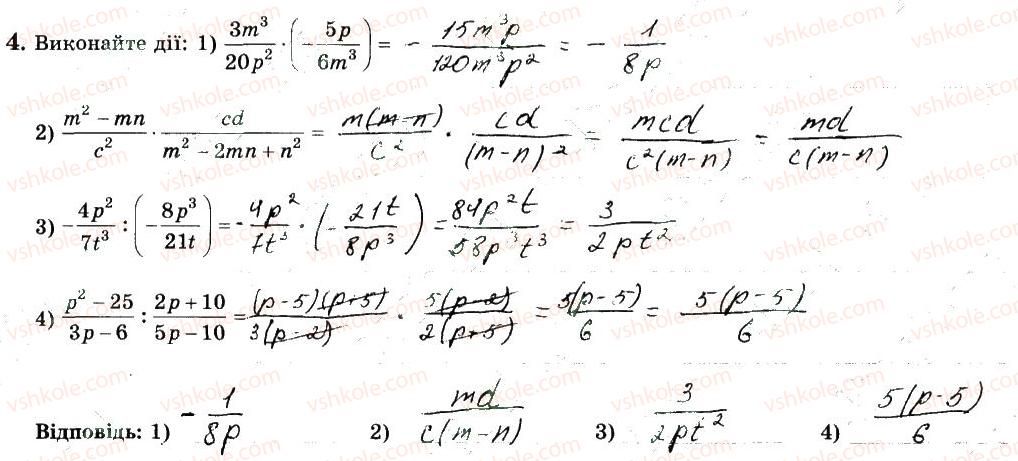 4. Виконайте дії: 1) 3m³/20p² · (−5p/6m³) = − 15m³p/120m³p² = − 1/8p
2) (m² − mn)/c² · cd/(m² − 2mn + n²) = m(m−n)/c² · cd/(m−n)² = mcd/c²(m−n) = md/c(m−n)
3) −4p²/7t³ : (−8p³/21t) = −4p²/7t³ · (−21t/8p³) = 84p²t/58p³t³ = 3/2pt²
4) (p² − 25)/(3p − 6) : (2p + 10)/(5p − 10) = (p−5)(p+5)/3(p−2) · 5(p−2)/2(p+5) = 5(p−5)/6 = 5(p−5)/6
Відповідь: 1) − 1/8p 2) md/c(m−n) 3) 3/2pt² 4) 5(p−5)/6